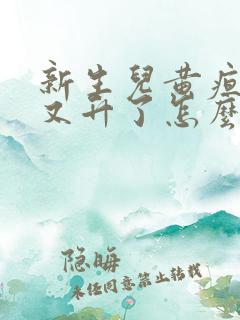 新生兒黄疸
又升了怎麼
隐晦
未经同意禁止转载